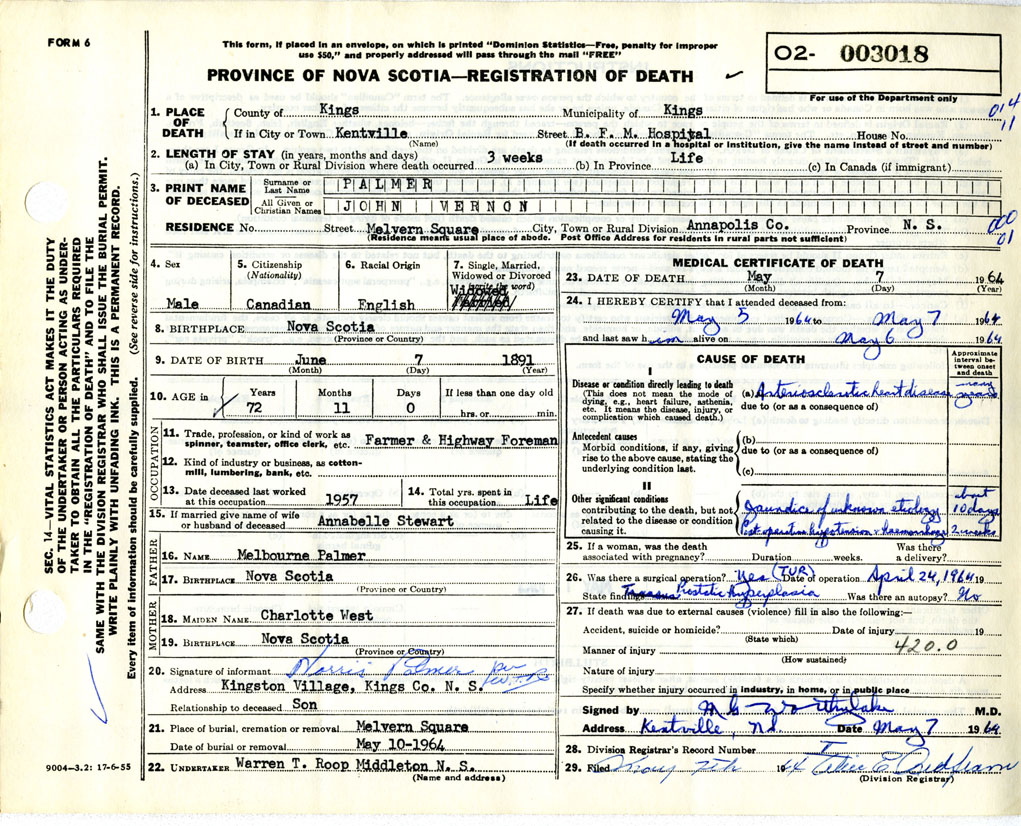 FORM 6
This form, if placed in an envelope, on which is printed "Dominion Statistics—Free, penalty for improper
use $50," and properly addressed will pass through the mail "FREE"
PROVINCE OF NOVA SCOTIA—REGISTRATION OF DEATH
02- 003018
For use of the Department only
014
11
1. PLACE OF DEATH
County of Kings Municipality of Kings
If in City or Town Kentville Street B. F. M. Hospital House No.
(Name) (If death occurred in a hospital or institution, give the name instead of street and number)
2. LENGTH OF STAY (in years, months and days)
(a) In City, Town or Rural Division where death occurred 3 weeks (b) In Province Life (c) In Canada (if immigrant)
3. PRINT NAME OF DECEASED
Surname or Last Name PALMER
All Given or Christian Names JOHN VERNON
RESIDENCE No. Street Melvern Square City, Town or Rural Division Annapolis Co. Province N. S.
(Residence means usual place of abode. Post Office Address for residents in rural parts not sufficient)
000
01
4. Sex
Male
5. Citizenship
(Nationality)
Canadian
6. Racial Origin
English
7. Single, Married,
Widowed or Divorced
(write the word)
Widowed
8. BIRTHPLACE Nova Scotia
(Province or Country)
9. DATE OF BIRTH June 7 1891
(Month) (Day) (Year)
10. AGE in
Years Months Days If less than one day
72 11 0 hrs. or min.
OCCUPATION
11. Trade, profession, or kind of work as
spinner, teamster, office clerk, etc. Farmer & Highway Foreman
12. Kind of industry or business, as cotton-
mill, lumbering, bank, etc.
13. Date deceased last worked
at this occupation 1957
14. Total yrs. spent in
this occupation Life
15. If married give name of wife
or husband of deceased Annabelle Stewart
FATHER
16. NAME Melbourne Palmer
17. BIRTHPLACE Nova Scotia
(Province or Country)
MOTHER
18. MAIDEN NAME Charlotte West
19. BIRTHPLACE Nova Scotia
(Province or Country)
20. Signature of informant Norris Palmer per
Address Kingston Village, Kings Co. N. S.
Relationship to deceased Son
21. Place of burial, cremation or removal Melvern Square
Date of burial or removal May 10-1964
22. UNDERTAKER Warren T. Roop Middleton N. S.
(Name and address)
MEDICAL CERTIFICATE OF DEATH
23. DATE OF DEATH May 7 1964
(Month) (Day) (Year)
24. I HEREBY CERTIFY that I attended deceased from:
May 5 1964 to May 7 1964
and last saw him alive on May 6 1964
CAUSE OF DEATH
Approximate
interval be-
tween onset
and death
I
Disease or condition directly leading to death
(This does not mean the mode of
dying, e.g., heart failure, asthenia,
etc. It means the disease, injury, or
complication which caused death.)
(a) Arteriosclerotic heart disease many years
due to (or as a consequence of)
Antecedent causes
Morbid conditions, if any, giving
rise to the above cause, stating the
underlying condition last.
(b)
due to (or as a consequence of)
(c)
II
Other significant conditions
contributing to the death, but not
related to the disease or condition
causing it.
Jaundice of unknown etiology about 10 days
Post operative hypotension & haemorrhage 2 weeks
25. If a woman, was the death
associated with pregnancy? Duration weeks. Was there
a delivery?
26. Was there a surgical operation? Yes (TUR) Date of operation April 24, 1964 19
State findings Prostatic hyperplasia Was there an autopsy? No
27. If death was due to external causes (violence) fill in also the following:—
Accident, suicide or homicide? Date of injury 19
(State which)
Manner of injury 420.0
(How sustained)
Nature of injury
Specify whether injury occurred in industry, in home, or in public place
Signed by M.D.
Address Kentville, N.S. Date May 7 1964
28. Division Registrar's Record Number
29. Filed May 7th 1964
(Division Registrar)
SEC. 14—VITAL STATISTICS ACT MAKES IT THE DUTY
OF THE UNDERTAKER OR PERSON ACTING AS UNDER-
TAKER TO OBTAIN ALL THE PARTICULARS REQUIRED
IN THE "REGISTRATION OF DEATH" AND TO FILE THE
SAME WITH THE DIVISION REGISTRAR WHO SHALL ISSUE THE BURIAL PERMIT.
WRITE PLAINLY WITH UNFADING INK. THIS IS A PERMANENT RECORD.
Every item of information should be carefully supplied. (See reverse side for instructions.)
9004-3.2: 17-6-55